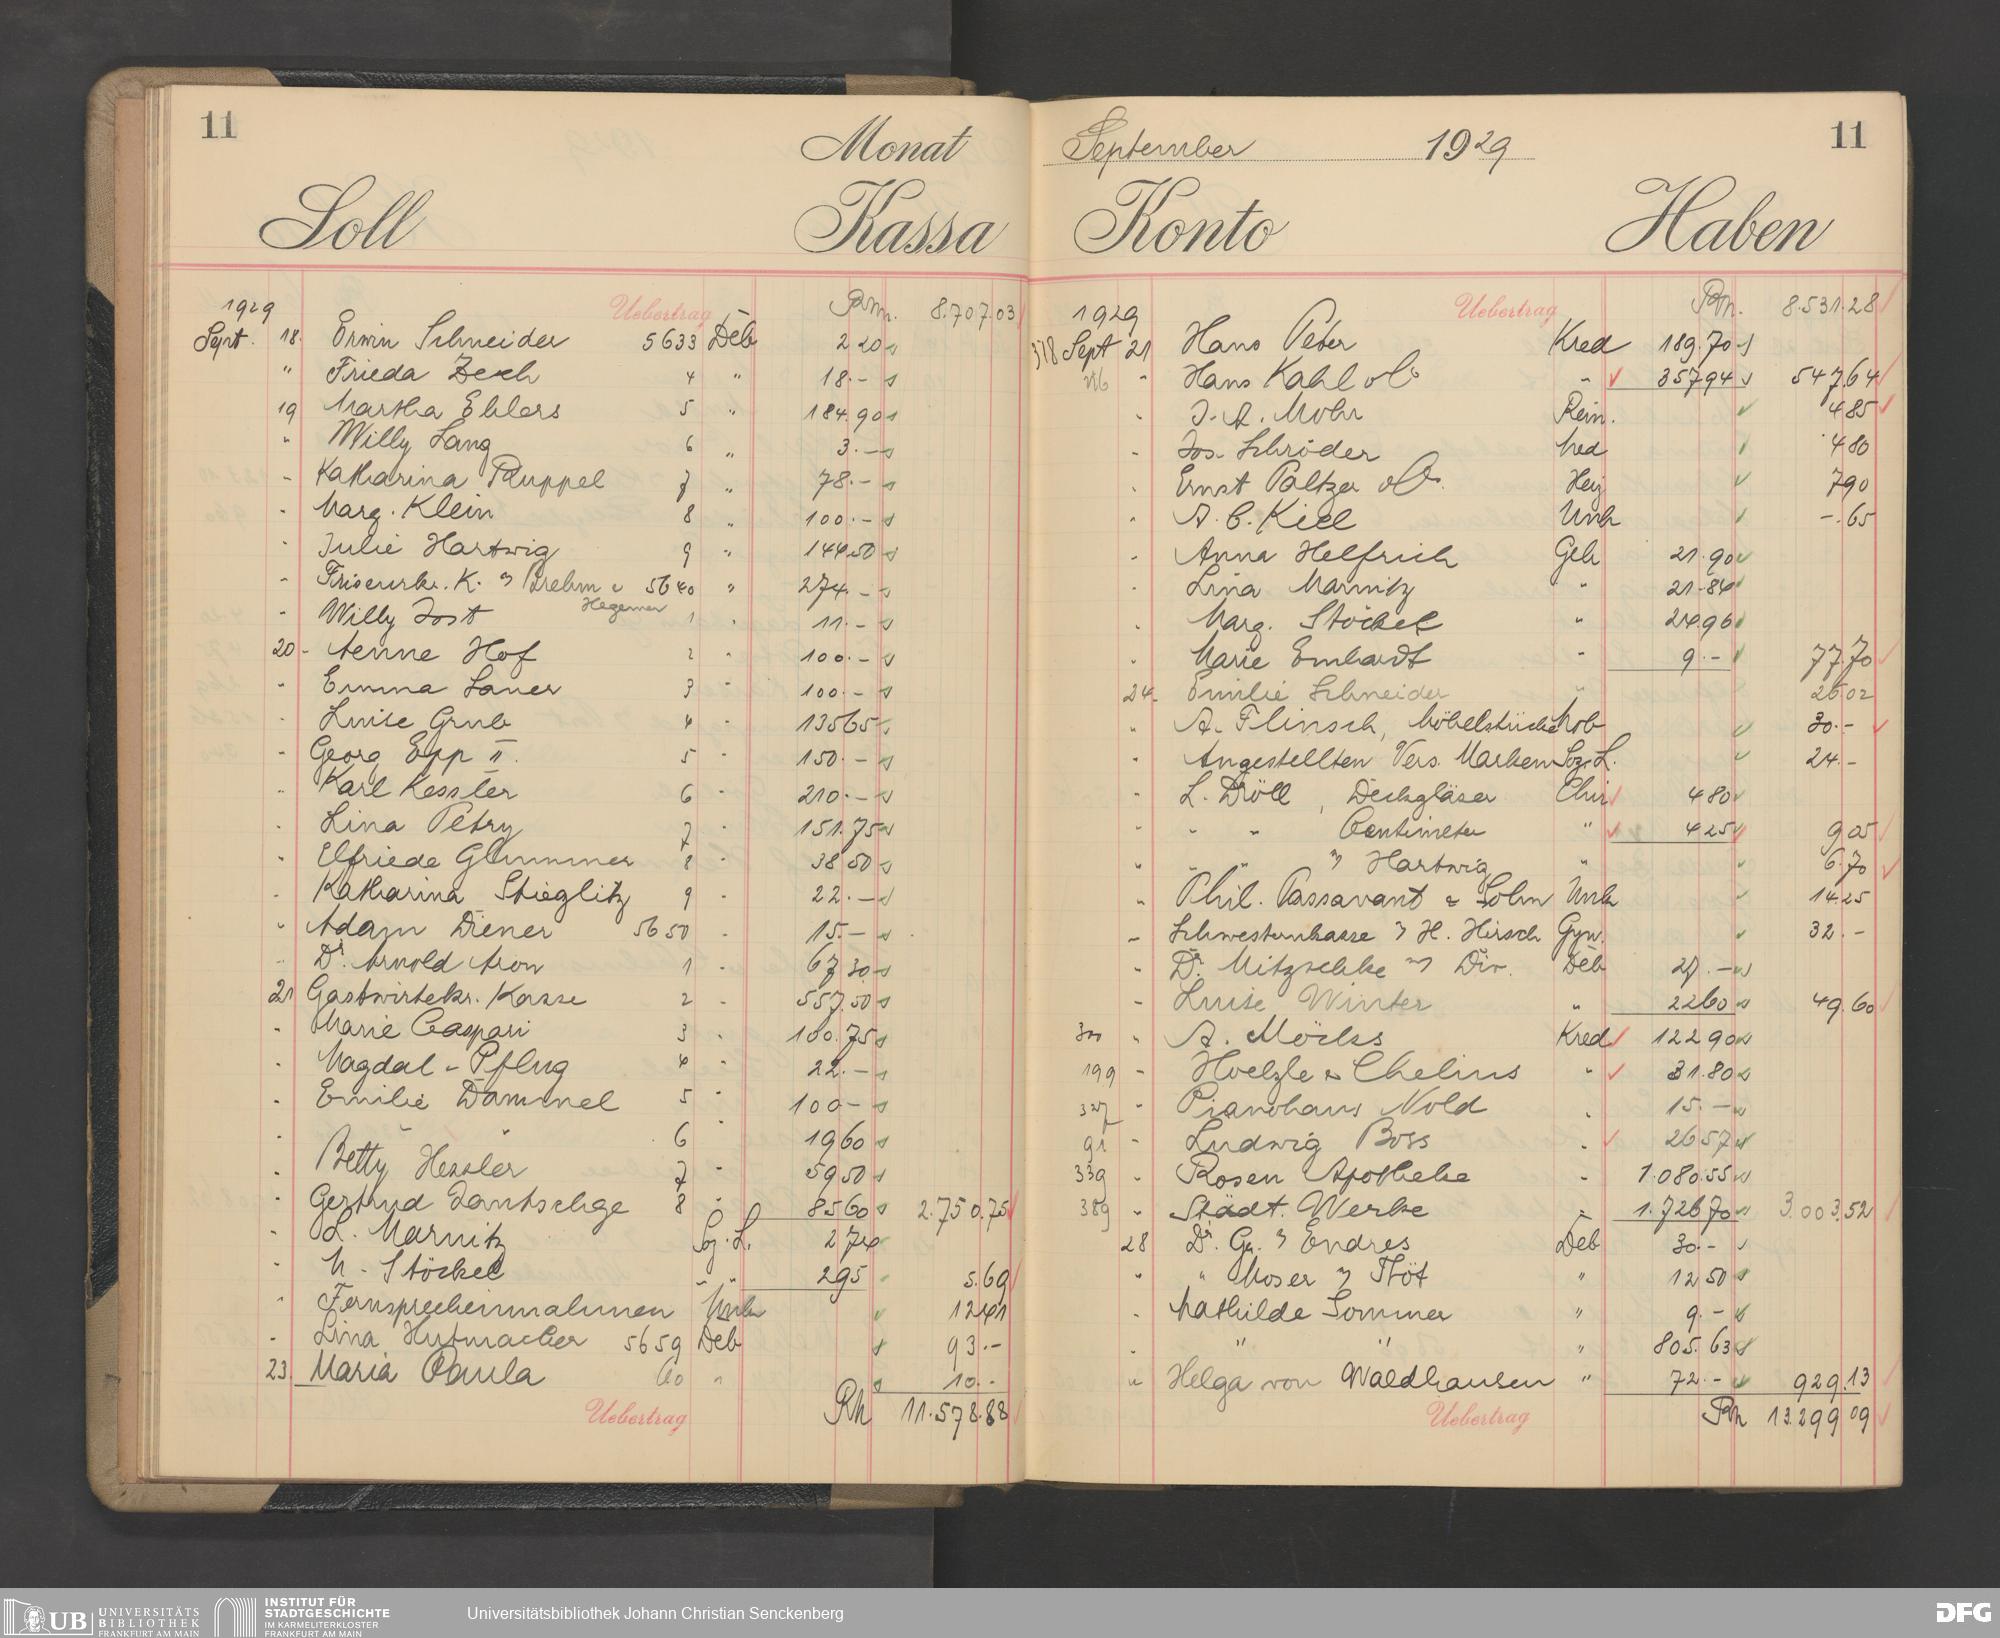 11
Monat
Soll Kassa
1929 Uebertrag Rm. 8.707.03
Sept. 18. Erwin Schneider 5633 Deb 2 20
" Frieda Zech 4 " 18.-
19 Martha Ehlers 5 " 184.90
" Willy Lang 6 " 3.-
" Katharina Ruppel 7 " 78.-
" Marg. Klein 8 " 100.-
" Julie Hartwig 9 " 144.50
" Friseurkr. K. Brehm 5640 " 274.-
Hegemer
" Willy Jost 1 " 11.-
20 Aenne Hof 2 " 100.-
" Emma Lauer 3 " 100.-
" Luise Grub 4 " 135 65
" Georg Epp II. 5 " 150.-
" Karl Kessler 6 " 210.-
" Lina Petry 7 " 151.75
" Elfriede Glummer 8 " 38 50
" Katharina Stieglitz 9 " 22.-
" Adam Diener 5650 " 15.-
" Dr. Arnold Aron 1 " 67 30
21 Gastwirtekr. Kasse 2 " 557.50
" Marie Caspari 3 " 100.75
" Magdal. Pflug 4 " 22.-
" Emilie Dammel 5 " 100.-
" " " 6 " 19 60
" Betty Hessler 7 " 59 50
" Gertrud Jantschge 8 " 85 60 2.750.75
" L. Marnitz Soz. L. 2 74
" M. Stöckel " " 2 95 5.69
" Fernsprecheinnahmen Unk 12 41
" Lina Hutmacher 5659 Deb 93.-
23. Maria Paula 60 " 10.-
Uebertrag Rm 11.578.88
September 1929 11
Konto Haben
1929 Uebertrag Rm. 8.531.28
378 Sept 21 Hans Peter Kred 189.70
" Hans Kahl " 357 94 547 64
" J. A. Mohr Rein. 4 85
" Jos. Schröder Med 4 80
" Ernst Paltzer Hei 7 90
" A. C. Kiel Unk -.65
" Anna Helfrich Geh 21.90
" Lina Marnitz " 21.84
" Marg. Stöckel " 24.96
" Marie Emhardt " 9.- 77.70
24. Emilie Schneider " 26 02
" A. Flinsch, Möbelstücke Mob 30.-
" Angestellten Vers. Marken Soz. L. 24.-
" L. Dröll, Deckgläser Chir 4 80
" " " Centimeter " 4 25 9 05
" " " Hartwig " 6.70
" Phil. Passavant & Sohn Unk 14.25
" Schwesternkasse H. Hirsch Gyn. 32.-
" Dr. Mitzschke Div. Deb 27.-
" Luise Winter " 22 60 49.60
300 " A. Möcks Kred 122 90
199 " Hoelzle & Chelius " 31.80
327 " Pianohaus Nold " 15.-
91 " Ludwig Boss " 26 57
339 " Rosen Apotheke " 1.080.55
389 " Städt. Werke " 1.726 70 3.003.52
28 Dr. Gg. Endres Deb 30.-
" " Moser Thöt " 12 50
" Mathilde Sommer " 9.-
" " " " 805.63
" Helga von Waldhausen " 72.- 929.13
Uebertrag Rm 13.299 09
UB UNIVERSITÄTS
BIBLIOTHEK
FRANKFURT AM MAIN
INSTITUT FÜR
STADTGESCHICHTE
IM KARMELITERKLOSTER
FRANKFURT AM MAIN
Universitätsbibliothek Johann Christian Senckenberg
DFG